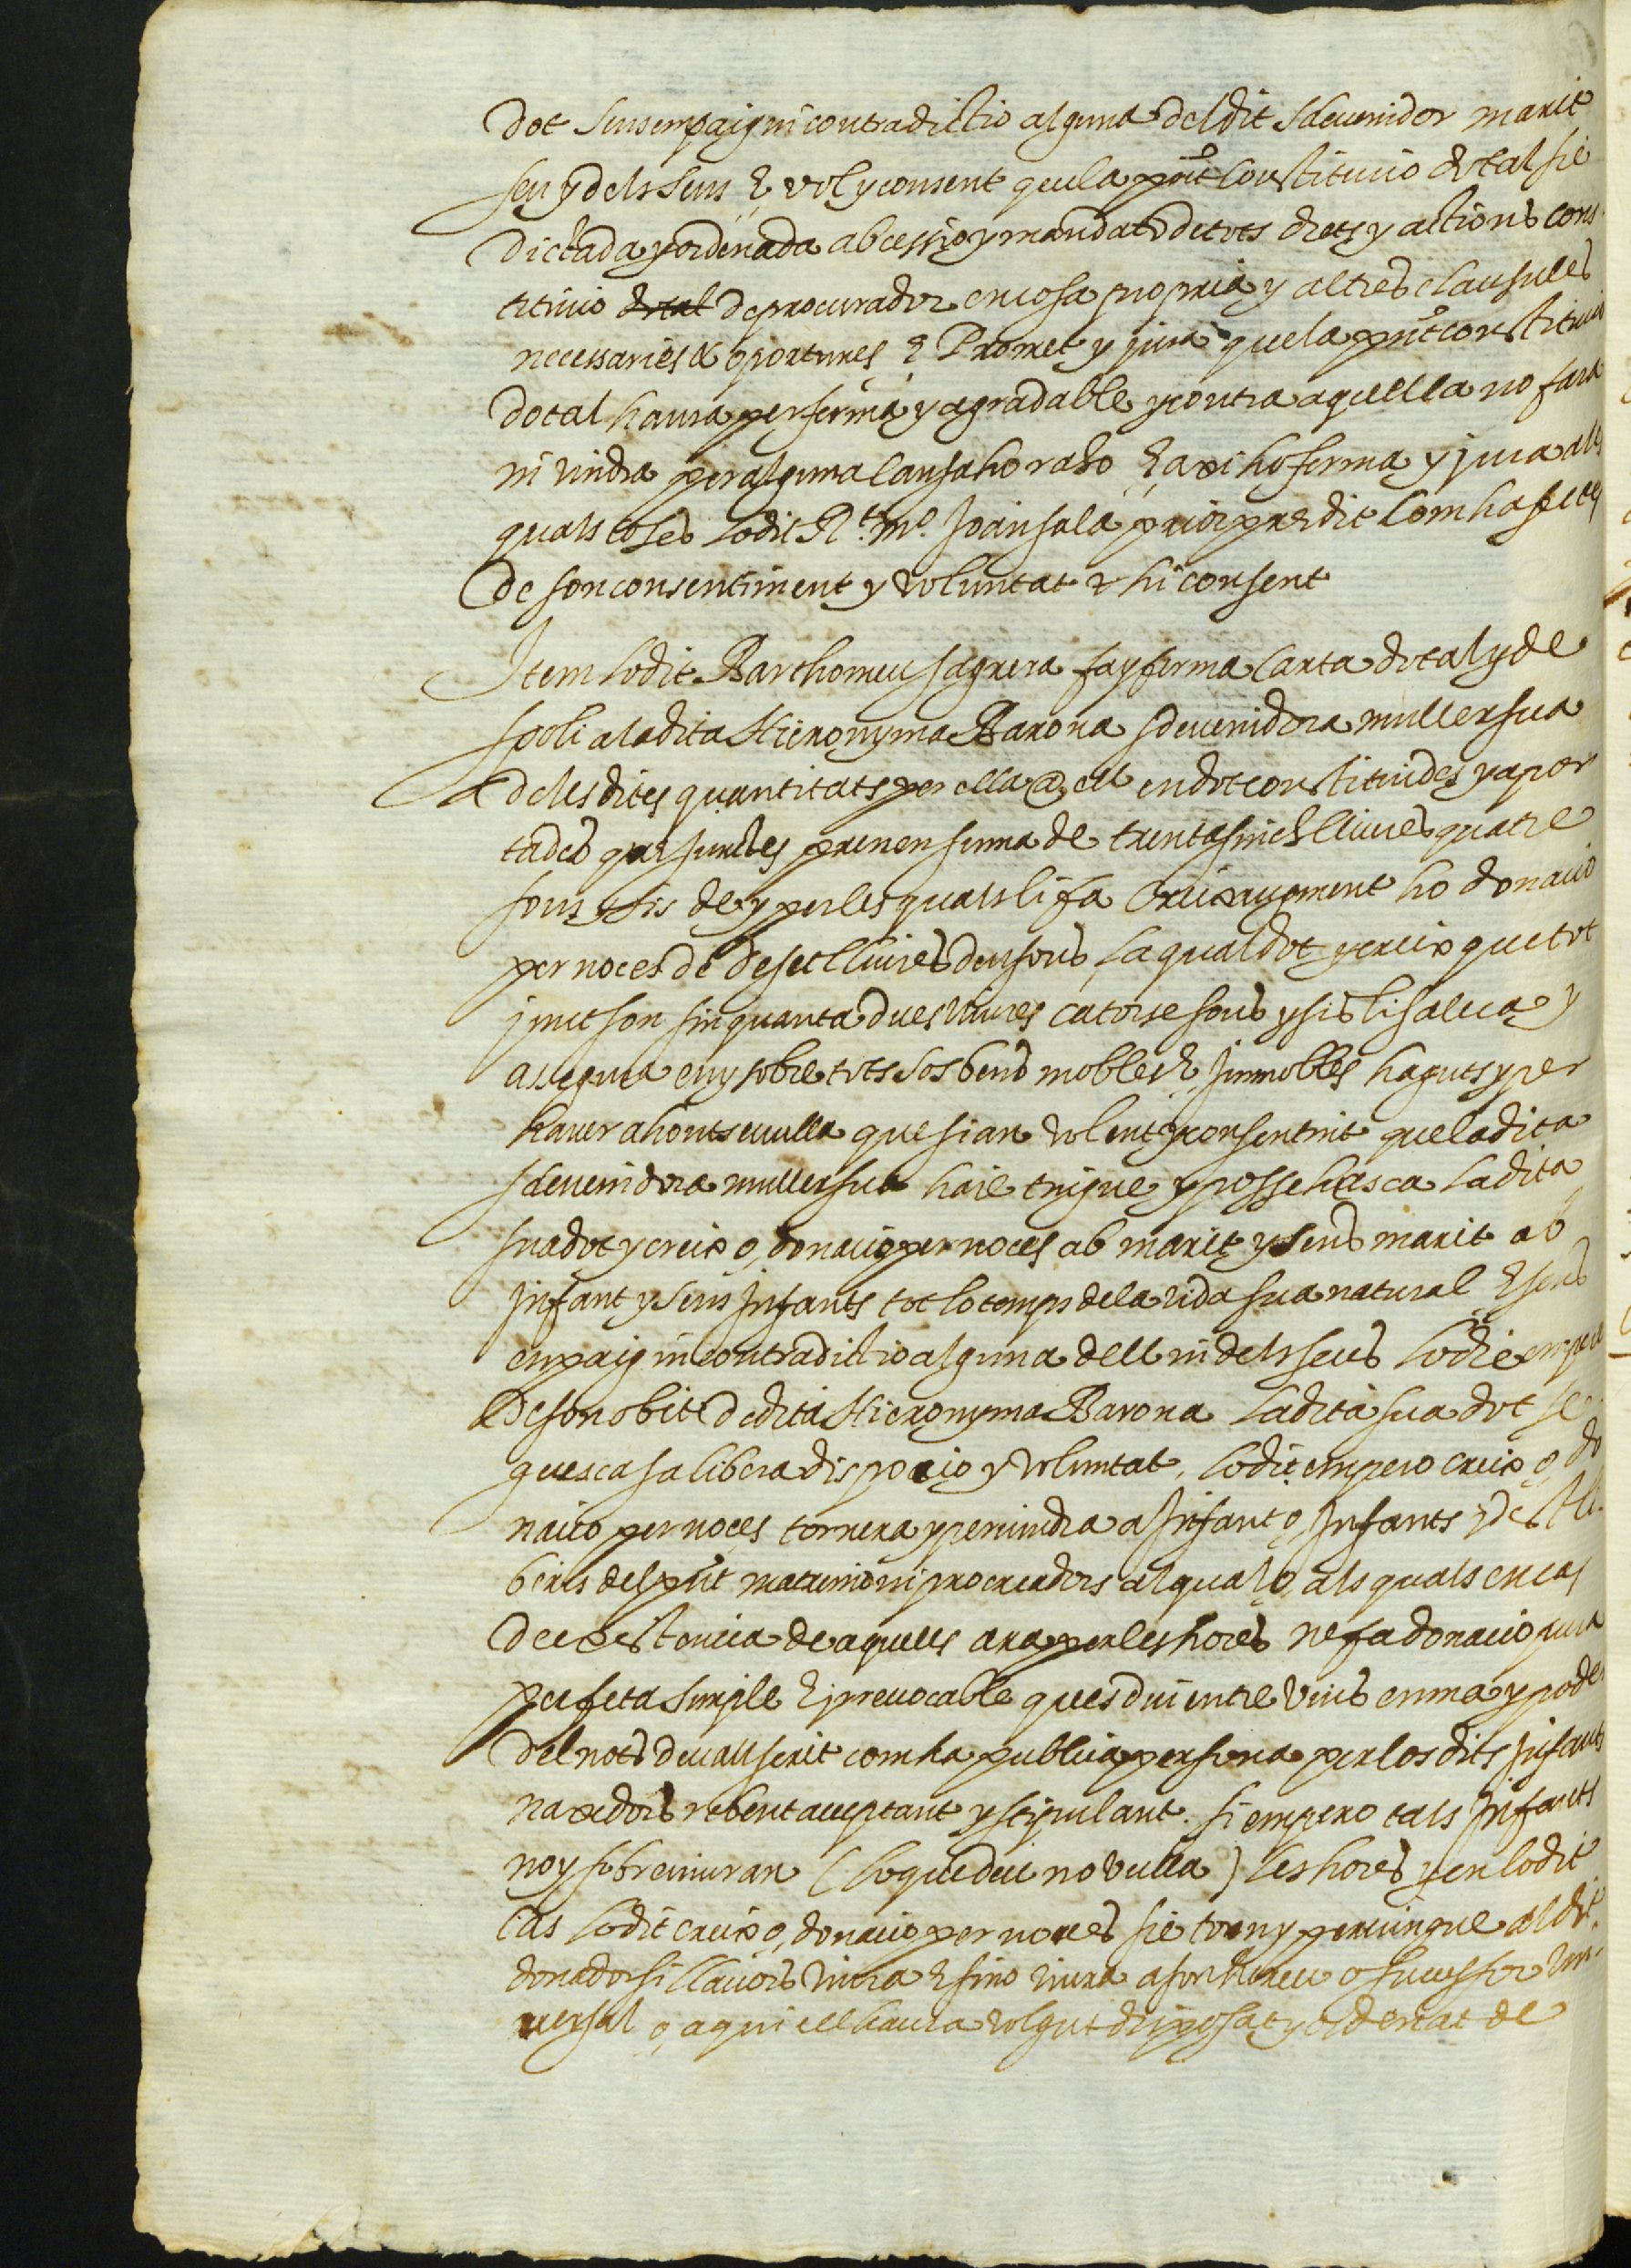 dot sens empaig ni contradictio alguna del dit sdevenidor marit
seu y dels seus E vol y consent que la pnt constitutio dotal sie
dictada y ordenada ab cessio y mandato de tots drets y actions cons
titutio dotal de procurador en cosa propria y altres clausules
necessaries & oportunes E Promet y jura que la pnt constitutio
dotal haura per ferma y agradable y contra aquella no fara
ni vindra per alguna causa ho raho E axi ho ferma y jura a les
quals coses lo dit Rt. mo. Joan sala prior predit com ha fetes
de son consentiment y voluntat & hi consent
Item lo dit Barthomeu sagrera fa y ferma carta dotal y de
spoli a la dita Hieronyma Barona sdevenidora muller sua
de les dites quantitats per ella a ell en dot constituides y apor
tades que juntes prenen suma de trenta sinch lliures quatre
sous sis de y per les quals li fa creix augment ho donatio
per noces de deset lliures deu sous la qual dot y creix que tot
junct son sinquanta dues lliures catorse sous y sis li salva y
assegura en y sobre tots sos bens mobles E Immobles haguts y per
haver ahont se vulla que sian volent y consentint que la dita
sdevenidora muller sua haie tingue y possehesca la dita
sua dot y creix o, donatio per noces ab marit y sens marit ab
Infant y sens Infants tot lo temps de la vida sua natural E sens
enpaig ni contradictio alguna dell ni dels seus lo die empero
de son obit de dita Hieronyma Barona la dita sua dot se
guesca sa libera dispocio y voluntat, lo dit empero creix o, do
natio per noces tornera y pervindra a Infant o, Infants y des lli
beris del pnt matrimoni procreadors al qual o, als quals en cas
de existencia de aquells ara per les hores ne fa donatio pura
perfeta simple E irrevocable ques diu entre vius en ma y poder
del nots devall scrit com ha publica persona per los dits Infants
naxedors rebent acceptant y stipulant. si empero tals Infants
no y sobreviuran (lo que deu no vulla) les hores y en lo dit
cas lo dit creix o, donatio per noces sie torn y pervingue al dit
donador si llavors viura E si no viura a son hereu o successor uni
versal o, a qui ell haura volgut disposat y ordenat de